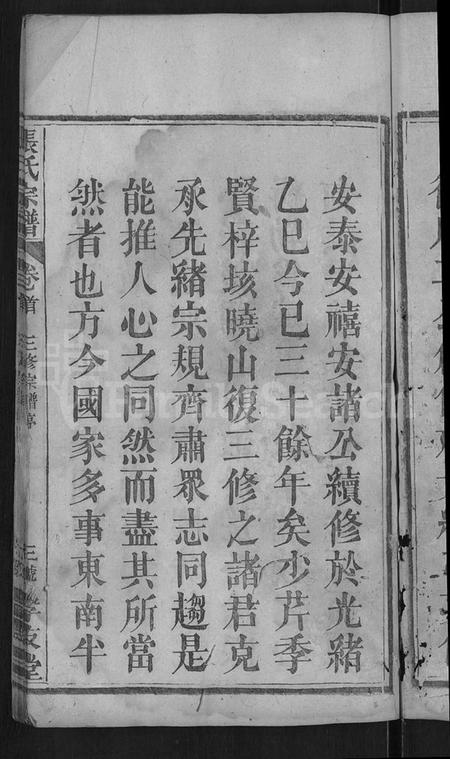 安泰安禧安諸公續修於光緒
乙巳今已三十餘年矣少芹季
賢梓垓曉山復三修之諸君克
承先緒宗規齊肅眾志同趨是
能推人心之同然而盡其所當
然者也方今國家多事東南半
張氏宗譜
卷首
三修宗譜序
三
孝友堂
FamilySearch